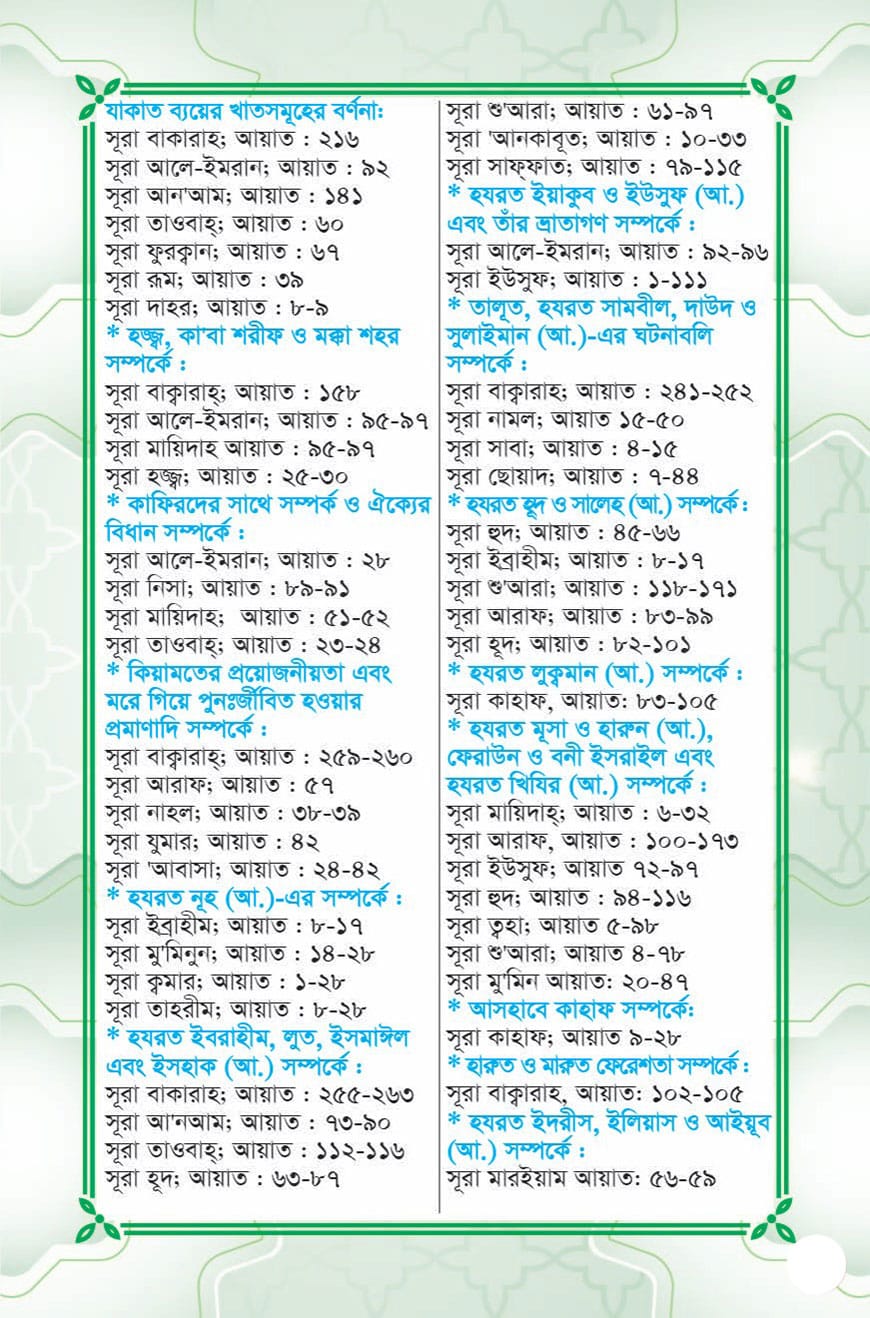 যাকাত ব্যয়ের খাতসমূহের বর্ণনা:
সূরা বাকারাহ; আয়াত : ২১৬
সূরা আলে-ইমরান; আয়াত : ৯২
সূরা আন'আম; আয়াত : ১৪১
সূরা তাওবাহ্; আয়াত : ৬০
সূরা ফুরক্বান; আয়াত : ৬৭
সূরা রূম; আয়াত : ৩৯
সূরা দাহর; আয়াত : ৮-৯
* হজ্জ্ব, কা'বা শরীফ ও মক্কা শহর
সম্পর্কে :
সূরা বাক্বারাহ্; আয়াত : ১৫৮
সূরা আলে-ইমরান; আয়াত : ৯৫-৯৭
সূরা মায়িদাহ আয়াত : ৯৫-৯৭
সূরা হজ্জ্ব; আয়াত : ২৫-৩০
* কাফিরদের সাথে সম্পর্ক ও ঐক্যের
বিধান সম্পর্কে :
সূরা আলে-ইমরান; আয়াত : ২৮
সূরা নিসা; আয়াত : ৮৯-৯১
সূরা মায়িদাহ; আয়াত : ৫১-৫২
সূরা তাওবাহ্; আয়াত : ২৩-২৪
* কিয়ামতের প্রয়োজনীয়তা এবং
মরে গিয়ে পুনঃর্জীবিত হওয়ার
প্রমাণাদি সম্পর্কে :
সূরা বাক্বারাহ্; আয়াত : ২৫৯-২৬০
সূরা আরাফ; আয়াত : ৫৭
সূরা নাহল; আয়াত : ৩৮-৩৯
সূরা যুমার; আয়াত : ৪২
সূরা 'আবাসা; আয়াত : ২৪-৪২
* হযরত নূহ (আ.)-এর সম্পর্কে :
সূরা ইব্রাহীম; আয়াত : ৮-১৭
সূরা মু'মিনুন; আয়াত : ১৪-২৮
সূরা ক্বমার; আয়াত : ১-২৮
সূরা তাহরীম; আয়াত : ৮-২৮
* হযরত ইবরাহীম, লুত, ইসমাঈল
এবং ইসহাক (আ.) সম্পর্কে :
সূরা বাকারাহ; আয়াত : ২৫৫-২৬৩
সূরা আ'নআম; আয়াত : ৭৩-৯০
সূরা তাওবাহ্; আয়াত : ১১২-১১৬
সূরা হূদ; আয়াত : ৬৩-৮৭
সূরা শু'আরা; আয়াত : ৬১-৯৭
সূরা 'আনকাবূত; আয়াত : ১০-৩৩
সূরা সাফ্ফাত; আয়াত : ৭৯-১১৫
* হযরত ইয়াকুব ও ইউসুফ (আ.)
এবং তাঁর ভ্রাতাগণ সম্পর্কে :
সূরা আলে-ইমরান; আয়াত : ৯২-৯৬
সূরা ইউসুফ; আয়াত : ১-১১১
* তালূত, হযরত সামবীল, দাউদ ও
সুলাইমান (আ.)-এর ঘটনাবলি
সম্পর্কে :
সূরা বাক্বারাহ; আয়াত : ২৪১-২৫২
সূরা নামল; আয়াত ১৫-৫০
সূরা সাবা; আয়াত : ৪-১৫
সূরা ছোয়াদ; আয়াত : ৭-৪৪
* হযরত হূদ ও সালেহ (আ.) সম্পর্কে :
সূরা হুদ; আয়াত : ৪৫-৬৬
সূরা ইব্রাহীম; আয়াত : ৮-১৭
সূরা শু'আরা; আয়াত : ১১৮-১৭১
সূরা আরাফ; আয়াত : ৮৩-৯৯
সূরা হূদ; আয়াত : ৮২-১০১
* হযরত লুক্বমান (আ.) সম্পর্কে :
সূরা কাহাফ, আয়াত: ৮৩-১০৫
* হযরত মূসা ও হারুন (আ.),
ফেরাউন ও বনী ইসরাইল এবং
হযরত খিযির (আ.) সম্পর্কে :
সূরা মায়িদাহ্; আয়াত : ৬-৩২
সূরা আরাফ, আয়াত : ১০০-১৭৩
সূরা ইউসুফ; আয়াত ৭২-৯৭
সূরা হুদ; আয়াত : ৯৪-১১৬
সূরা ত্বহা; আয়াত ৫-৯৮
সূরা শু'আরা; আয়াত ৪-৭৮
সূরা মু'মিন আয়াত: ২০-৪৭
* আসহাবে কাহাফ সম্পর্কে:
সূরা কাহাফ; আয়াত ৯-২৮
* হারুত ও মারুত ফেরেশতা সম্পর্কে :
সূরা বাক্বারাহ, আয়াত: ১০২-১০৫
* হযরত ইদরীস, ইলিয়াস ও আইয়ূব
(আ.) সম্পর্কে :
সূরা মারইয়াম আয়াত: ৫৬-৫৯